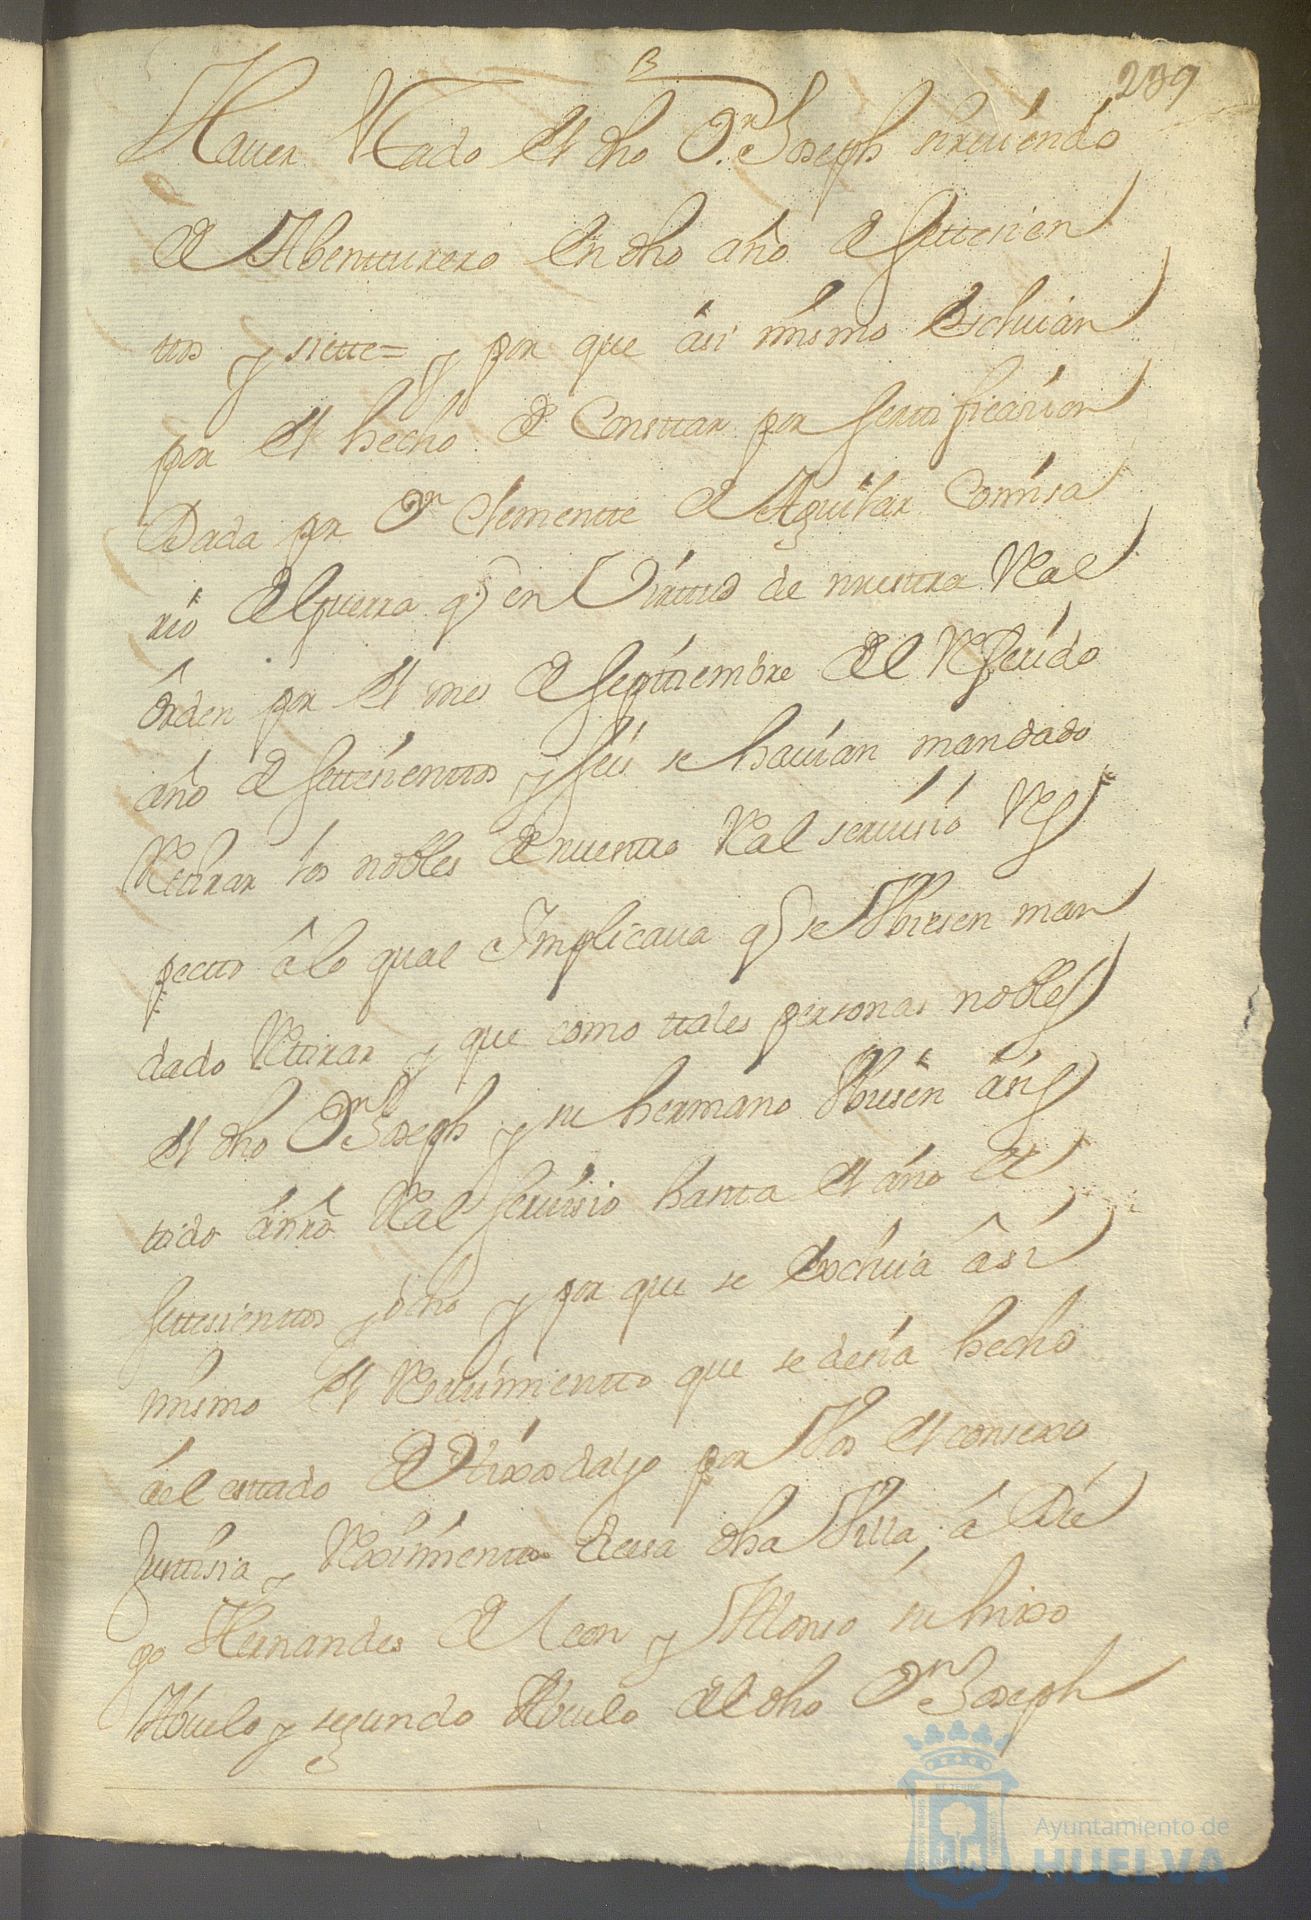 B
239
Hauer Vᵗᵃdo el dho Dⁿ Joseph siruiendo
de Abentturero en dho año de settesien
ttos y siette= y por que asi mismo escluian
por el hecho de Consttar por serttificasion
Dada por Dⁿ Clementte de Aguilar Comisa
rio de guerra q̃ en Virttud de nuestra Real
orden por el mes de septtiembre del Referido
año de settesienttos y seis se hauian mandado
Rettirar los nobles de nuestro Real seruisio Res
pectto â lo qual Implicaua q̃ se Vbiesen man
dado Rettirar y que como ttales personas nobles
el dho Dⁿ Joseph y su hermano Vbiesen asis
tido a nr̃o Real seruisio hasta el año de
settesienttos y ocho y por que se escluia âsi
mismo el Resiuimientto que se desia hecho
ael esttado de Hixosdalgo por Vos el consexo
Justtisia y Reximientto de esa dha Villa, a Die
go Hernandes de leon y Alonso su hixo
Abuelo y segundo Abuelo del dho Dⁿ Joseph
Ayuntamiento de
HUELVA